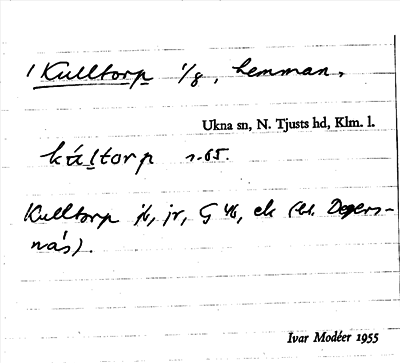 1 Kulltorp 1/8, hemman.
Ukna sn, N. Tjusts hd, Klm. l.
kúltorp s. 65.
Kulltorp jb, jr, G 46, ek (bl. Degers-
näs).
Ivar Modéer 1955